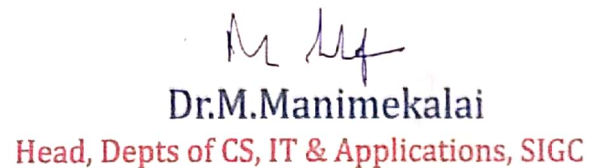 Dr.M.Manimekalai
Head, Depts of CS, IT & Applications, SIGC